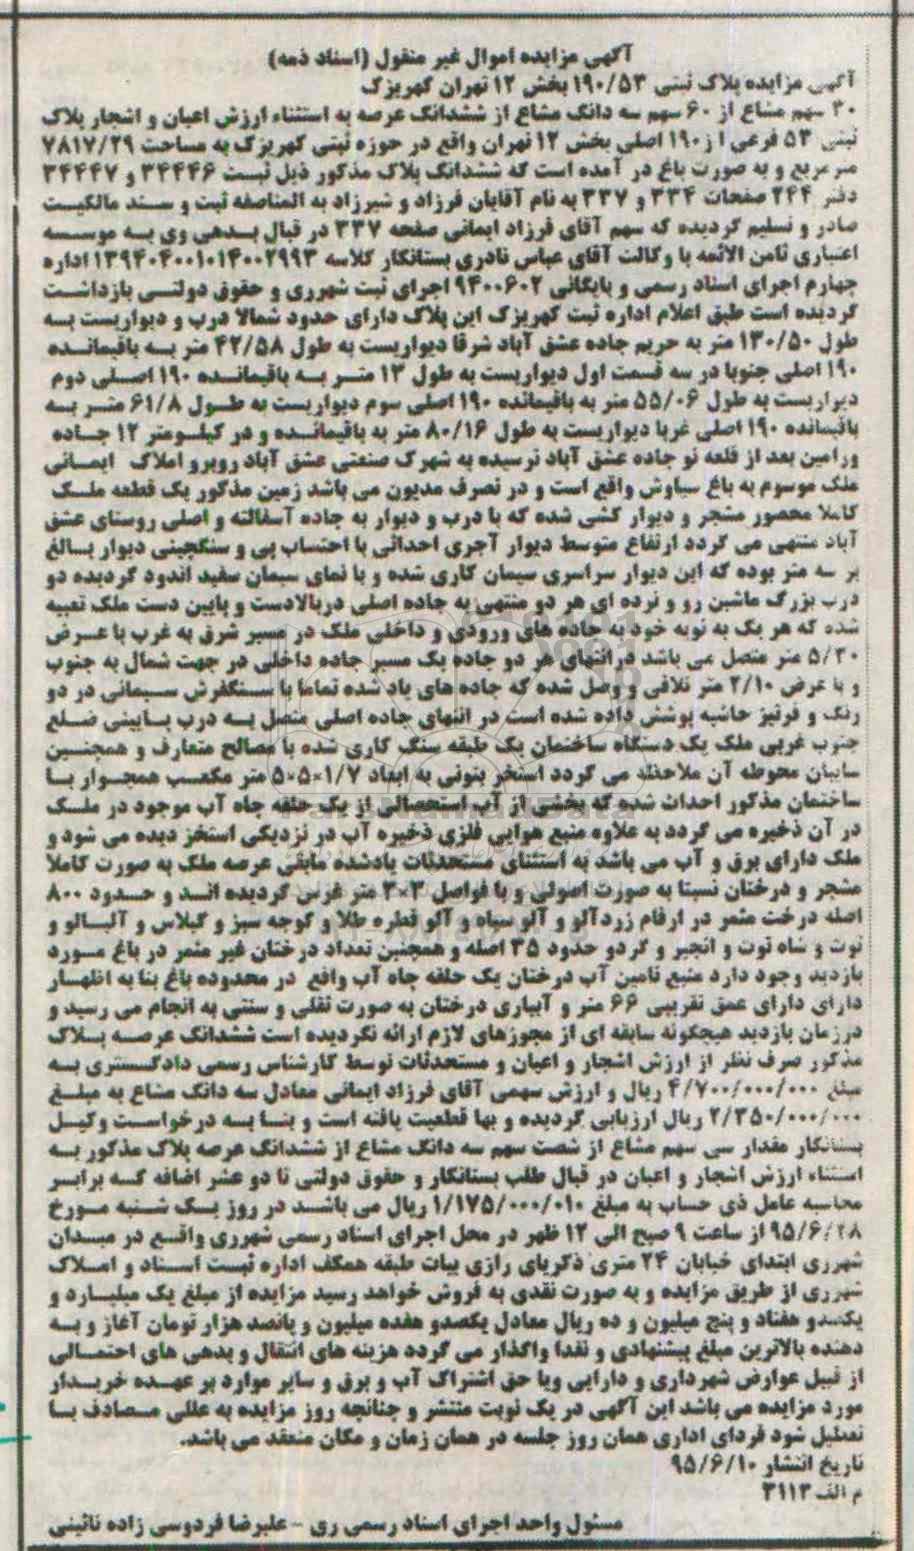 آگهی مزایده اموال غیر منقول (اسناد ذمه)
آگهی مزایده پلاک ثبتی ۱۹۰/۵۳ بخش ۱۲ تهران کهریزک
۳۰ سهم مشاع از ۶۰ سهم سه دانگ مشاع از ششدانگ عرصه به استثناء ارزش اعیان و اشجار پلاک
ثبتی ۵۳ فرعی از ۱۹۰ اصلی بخش ۱۲ تهران واقع در حوزه ثبتی کهریزک به مساحت ۷۸۱۷/۲۹
متر مربع و به صورت باغ در آمده است که ششدانگ پلاک مذکور ذیل ثبت ۳۴۴۴۶ و ۳۴۴۴۷
دفتر ۲۴۴ صفحات ۳۳۴ و ۳۳۷ به نام آقایان فرزاد و شیرزاد به المناصفه ثبت و سند مالکیت
صادر و تسلیم گردیده که سهم آقای فرزاد ایمانی صفحه ۳۳۷ در قبال بدهی وی به موسسه
اعتباری ثامن الائمه با وکالت آقای عباس نادری بستانکار کلاسه ۱۳۹۴۰۴۰۰۱۰۱۴۰۰۲۹۹۳ اداره
چهارم اجرای اسناد رسمی و بایگانی ۹۴۰۰۶۰۲ اجرای ثبت شهرری و حقوق دولتی بازداشت
گردیده است طبق اعلام اداره ثبت کهریزک این پلاک دارای حدود شمالا درب و دیواریست به
طول ۱۳۰/۵۰ متر به حریم جاده عشق آباد شرقا دیواریست به طول ۴۲/۵۸ متر به باقیمانده
۱۹۰ اصلی جنوبا در سه قسمت اول دیواریست به طول ۱۳ متر به باقیمانده ۱۹۰ اصلی دوم
دیواریست به طول ۵۵/۰۶ متر به باقیمانده ۱۹۰ اصلی سوم دیواریست به طول ۶۱/۸ متر به
باقیمانده ۱۹۰ اصلی غربا دیواریست به طول ۸۰/۱۶ متر به باقیمانده و در کیلومتر ۱۲ جاده
ورامین بعد از قلعه نو جاده عشق آباد نرسیده به شهرک صنعتی عشق آباد روبرو املاک ایمانی
ملک موسوم به باغ سیاوش واقع است و در تصرف مدیون می باشد زمین مذکور یک قطعه ملک
کاملا محصور مشجر و دیوار کشی شده که با درب و دیوار به جاده آسفالته و اصلی روستای عشق
آباد منتهی می گردد ارتفاع متوسط دیوار آجری احداثی با احتساب پی و سنگچینی دیوار بالغ
بر سه متر بوده که این دیوار سراسری سیمان کاری شده و با نمای سیمان سفید اندود گردیده دو
درب بزرگ ماشین رو و نرده ای هر دو منتهی به جاده اصلی دربالادست و پایین دست ملک تعبیه
شده که هر یک به نوبه خود به جاده های ورودی و داخلی ملک در مسیر شرق به غرب با عرض
۵/۲۰ متر متصل می باشد درانتهای هر دو جاده یک مسیر جاده داخلی در جهت شمال به جنوب
و با عرض ۲/۱۰ متر تلاقی و وصل شده که جاده های یاد شده تماما با سنگفرش سیمانی در دو
رنگ و قرنیز حاشیه پوشش داده شده است در انتهای جاده اصلی متصل به درب پایینی ضلع
جنوب غربی ملک یک دستگاه ساختمان یک طبقه سنگ کاری شده با مصالح متعارف و همچنین
سایبان محوطه آن ملاحظه می گردد استخر بتونی به ابعاد ۵×۵×۱/۷ متر مکعب همجوار با
ساختمان مذکور احداث شده که بخشی از آب استحصالی از یک حلقه چاه آب موجود در ملک
در آن ذخیره می گردد به علاوه منبع هوایی فلزی ذخیره آب در نزدیکی استخر دیده می شود و
ملک دارای برق و آب می باشد به استثنای مستحدثات یادشده مابقی عرصه ملک به صورت کاملا
مشجر و درختان نسبتا به صورت اصولی و با فواصل ۳×۳ متر غرس گردیده اند و حدود ۸۰۰
اصله درخت مثمر در ارقام زردآلو و آلو سیاه و آلو قطره طلا و گوجه سبز و گیلاس و آلبالو و
توت و شاه توت و انجیر و گردو حدود ۳۵ اصله و همچنین تعداد درختان غیر مثمر در باغ مورد
بازدید وجود دارد منبع تامین آب درختان یک حلقه چاه آب واقع در محدوده باغ بنا به اظهار
دارای دارای عمق تقریبی ۶۶ متر و آبیاری درختان به صورت ثقلی و سنتی به انجام می رسید و
درزمان بازدید هیچگونه سابقه ای از مجوزهای لازم ارائه نگردیده است ششدانگ عرصه پلاک
مذکور صرف نظر از ارزش اشجار و اعیان و مستحدثات توسط کارشناس رسمی دادگستری به
مبلغ ۴/۷۰۰/۰۰۰/۰۰۰ ریال و ارزش سهمی آقای فرزاد ایمانی معادل سه دانگ مشاع به مبلغ
۲/۳۵۰/۰۰۰/۰۰۰ ریال ارزیابی گردیده و بها قطعیت یافته است و بنا به درخواست وکیل
بستانکار مقدار سی سهم مشاع از شصت سهم سه دانگ مشاع از ششدانگ عرصه پلاک مذکور به
استثناء ارزش اشجار و اعیان در قبال طلب بستانکار و حقوق دولتی تا دو عشر اضافه که برابر
محاسبه عامل ذی حساب به مبلغ ۱/۱۷۵/۰۰۰/۰۱۰ ریال می باشد در روز یک شنبه مورخ
۹۵/۶/۲۸ از ساعت ۹ صبح الی ۱۲ ظهر در محل اجرای اسناد رسمی شهرری واقع در میدان
شهرری ابتدای خیابان ۲۴ متری ذکریای رازی بیات طبقه همکف اداره ثبت اسناد و املاک
شهرری از طریق مزایده و به صورت نقدی به فروش خواهد رسید مزایده از مبلغ یک میلیارد و
یکصدو هفتاد و پنج میلیون و ده ریال معادل یکصدو هفده میلیون و پانصد هزار تومان آغاز و به
دهنده بالاترین مبلغ پیشنهادی و نقدا واگذار می گردد هزینه های انتقال و بدهی های احتمالی
از قبیل عوارض شهرداری و دارایی ویا حق اشتراک آب و برق و سایر موارد بر عهده خریدار
مورد مزایده می باشد این آگهی در یک نوبت منتشر و چنانچه روز مزایده به عللی مصادف با
تعطیل شود فردای اداری همان روز جلسه در همان زمان و مکان منعقد می باشد.
تاریخ انتشار ۹۵/۶/۱۰
م الف ۳۱۱۳
مسئول واحد اجرای اسناد رسمی ری - علیرضا فردوسی زاده نائینی